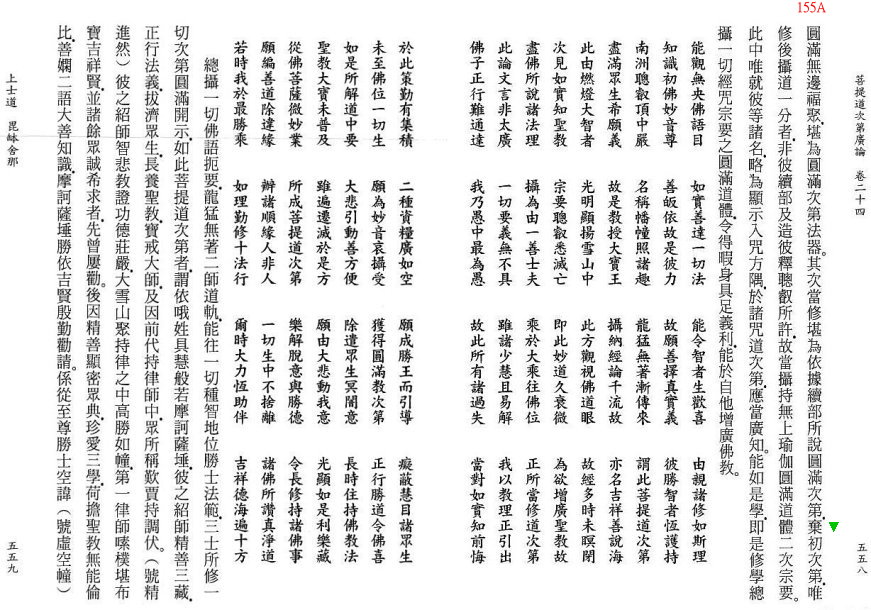 155A
菩提道次第廣論　卷二十四
五五八
圓滿無邊福聚、堪為圓滿次第法器。其次當修堪為依據續部所說圓滿次第、棄初次第、唯
修後攝道一分者、非彼續部及造彼釋聰叡所許、故當攝持無上瑜伽圓滿道體二次宗要。
此中唯就彼等諸名、略為顯示入咒方隅、於諸咒道次第、應當廣知。能如是學、即是修學總
攝一切經咒宗要之圓滿道體、令得暇身具足義利、能於自他增廣佛教。
能觀無央佛語目　如實善達一切法　能令智者生歡喜　由親諸修如斯理
知識初佛妙音尊　善皈依故是彼力　故願善擇真實義　彼勝智者恆護持
南洲聰叡頂中嚴　名稱幡幢照諸趣　龍猛無著漸傳來　謂此菩提道次第
盡滿眾生希願義　故是教授大寶王　攝納經論千流故　亦名吉祥善說海
此由燃燈大智者　光明顯揚雪山中　此方觀視佛道眼　故經多時未瞑閉
次見如實知聖教　宗要聰叡悉滅亡　即此妙道久衰微　為欲增廣聖教故
盡佛所說諸法理　攝為由一善士夫　乘於大乘往佛位　正所當修道次第
此論文言非太廣　一切要義無不具　雖諸少慧且易解　我以教理正引出
佛子正行難通達　我乃愚中最為愚　故此所有諸過失　當對如實知前悔
於此策勤有集積　二種資糧廣如空　願成勝王而引導　癡蔽慧目諸眾生
未至佛位一切生　願為妙音哀攝受　獲得圓滿教次第　正行勝道令佛喜
如是所解道中要　大悲引動善方便　除遣眾生冥闇意　長時住持佛教法
聖教大寶未普及　雖遍遷滅於是方　願由大悲動我意　光顯如是利樂藏
從佛菩薩微妙業　所成菩提道次第　樂解脫意與勝德　令長修持諸佛事
願編善道除違緣　辦諸順緣人非人　一切生中不捨離　諸佛所讚真淨道
若時我於最勝乘　如理勤修十法行　爾時大力恆助伴　吉祥德海遍十方
總攝一切佛語扼要、龍猛無著二師道軌、能往一切種智地位勝士法範、三士所修一
切次第圓滿開示、如此菩提道次第者、謂依哦姓具慧般若摩訶薩埵、彼之紹師精善三藏、
正行法義、拔濟眾生、長養聖教、寶戒大師、及因前代持律師中、眾所稱歎賈持調伏。（號精
進然）彼之紹師智悲教證功德莊嚴、大雪山聚持律之中高勝如幢、第一律師嗉樸堪布
寶吉祥賢、並諸餘眾誠希求者、先曾屢勸。後因精善顯密眾典、珍愛三學、荷擔聖教無能倫
比、善嫻二語大善知識、摩訶薩埵勝依吉賢殷勤勸請。係從至尊勝士空諱（號虛空幢）
上士道　毘缽舍那
五五九